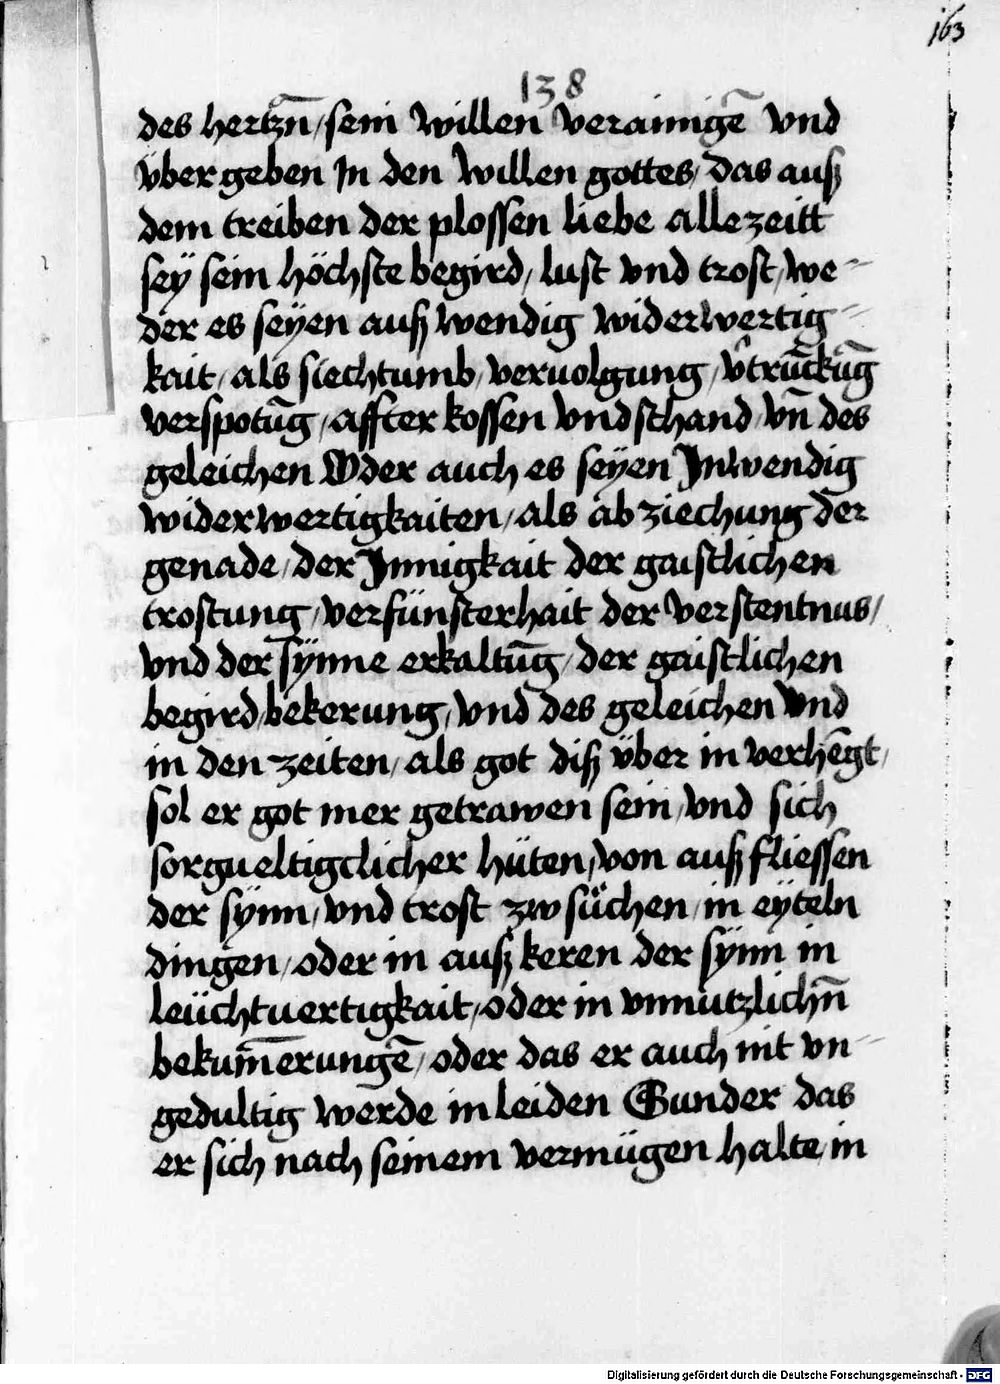 163
138
des hertzn̄ / sein willen verainigē vnd
übergeben In den willen gottes / das auß
dem treiben der plossen liebe allezeitt
seÿ sein höchste begird / lust vnd trost / we-
der es seÿen außwendig widerwertig-
kait / als siechtumb / veruolgung / v̂trŭckūg
verspotūg / affterkossen vnd schand / vn̄ des
geleichen Oder auch es seÿen Inwendig
widerwertigkaiten / als abziechung der
genade / der Innigkait der gaistlichen
trostung / verfünsterhait der verstentnus /
vnd der sÿnne erkaltūg / der gaistlichen
begird / bekerung / vnd des geleichen Vnd
in den zeiten / als got diß über in verhēgt /
sol er got mer getrawen sein / vnd sich
sorgueltigclicher hüten / von außfliessen
der sÿnn / vnd trost zw sůchen / in eÿteln
dingen / oder in außkeren der sÿnn in
leüchtuertigkait / oder in vnnutzlichn̄
bekum̄erungē / oder das er auch nit vn-
gedultig werde in leiden Sunder das
er sich nach seinem vermügen halte / in
Digitalisierung gefördert durch die Deutsche Forschungsgemeinschaft - DFG